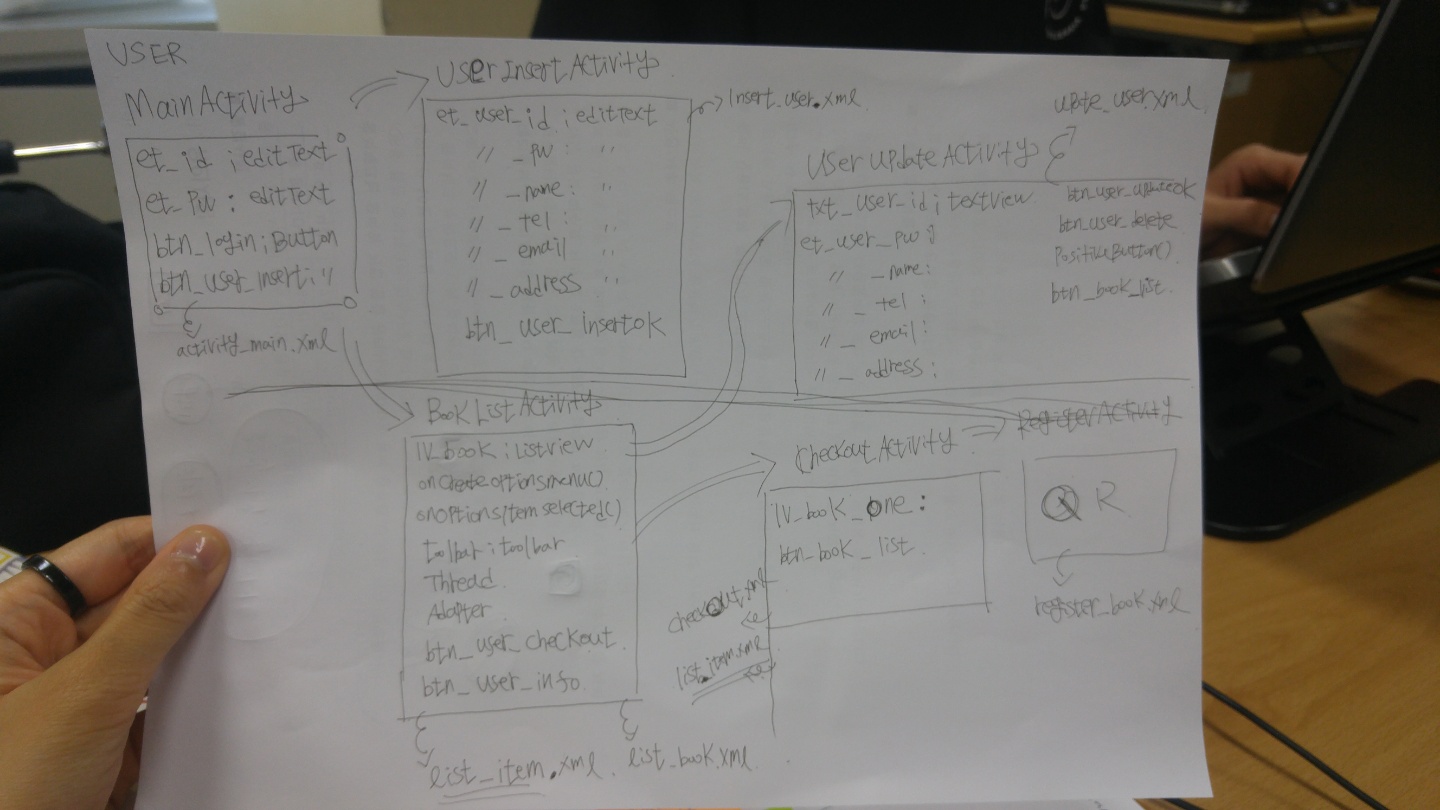 USER
MainActivity
et_id ; editText
et_PW : editText
btn_login ; Button
btn_user_insert ; "
activity_main.xml
User Insert Activity
et_user_id ; editText
" _pw : "
" _name : "
" _tel : "
" _email "
" _address "
btn_user_insertok
Insert_user.xml
User Update Activity
txt_user_id ; textView
et_user_pw :
" _name :
" _tel :
" _email :
" _address :
btn_user_updateok
btn_user_delete
PositiveButton()
btn_book_list
Book List Activity
lv_book ; Listview
onCreateoptionsmenu()
onOptionsItemselected()
toolbar ; toolbar
Thread
Adapter
btn_user_checkout
btn_user_info
list_item.xml
list_book.xml
Checkout Activity
lv_book_one :
btn_book_list
checkout.xml
list_item.xml
Register Activity
QR
register_book.xml